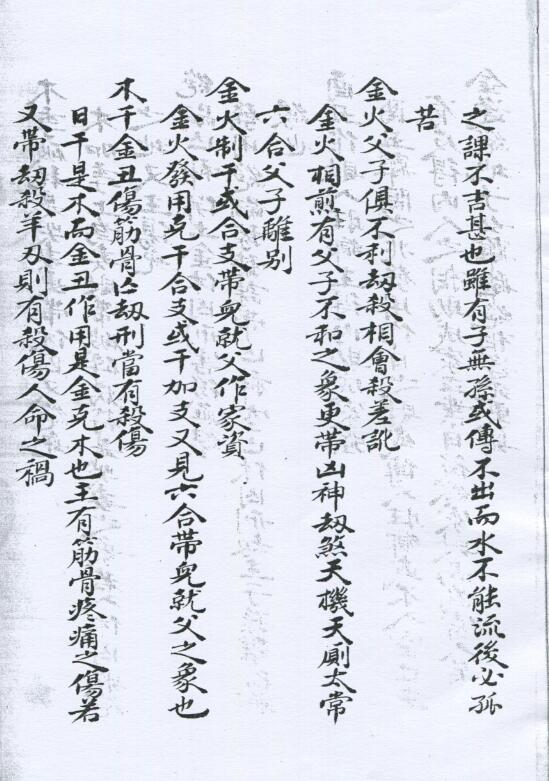 之課不吉甚也雖有子無孫或傳不出而水不能流後必孤
苦
金火父子俱不利劫殺相會殺差訛
金火相煎有父子不和之象更帶凶神劫煞天機天廁太常
六合父子離別
金火制干或合支帶兒就父作家資
金火發用克干合支或干加支又見六合帶兒就父之象也
木干金丑傷筋骨凶劫刑當有殺傷
日干是木而金丑作用是金克木也主有筋骨疼痛之傷若
又帶劫殺羊刃則有殺傷人命之禍